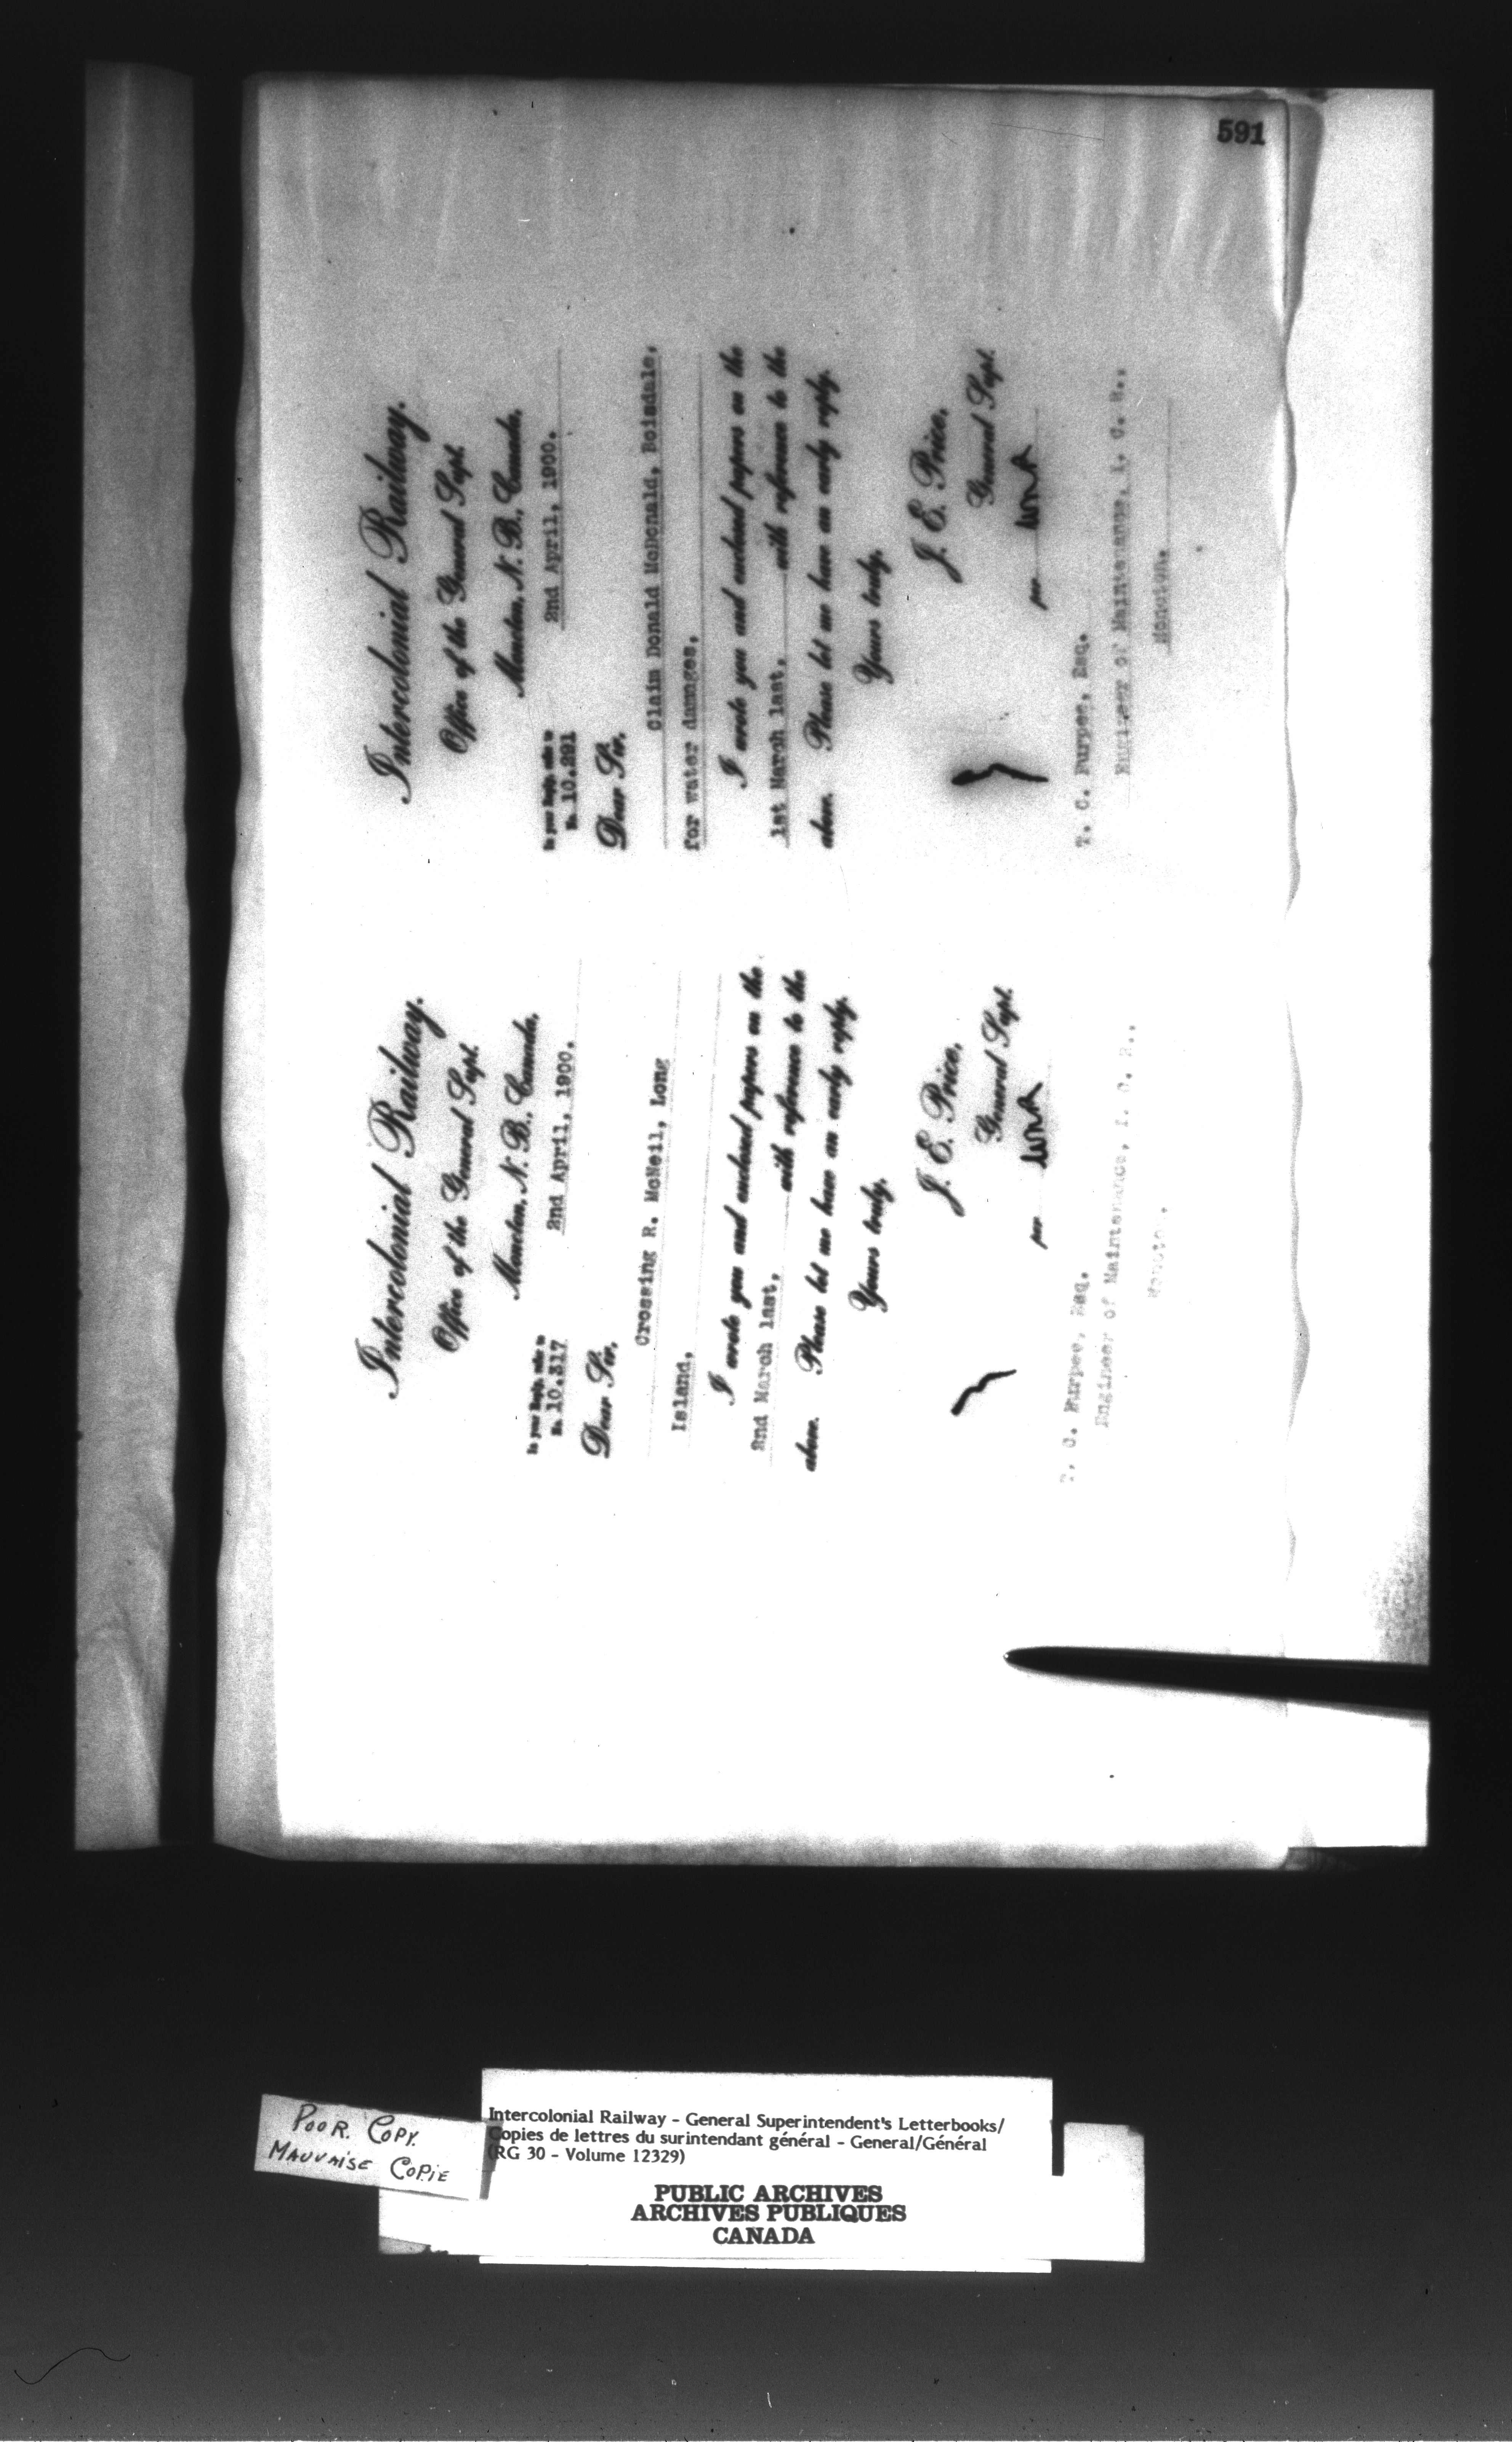 591
Intercolonial Railway.
Office of the General Supt.
Moncton, N. B., Canada,
2nd April, 1900.
In your Reply, refer to
No. 10.317
Dear Sir,
Crossing R. McNeil, Long
Island,
I wrote you and enclosed papers on the
2nd March last, with reference to the
above. Please let me have an early reply.
Yours truly,
J. E. Price,
General Supt.
per
T. C. Burpee, Esq.
Engineer of Maintenance, I. C. R.,
Moncton.
Intercolonial Railway.
Office of the General Supt.
Moncton, N. B., Canada,
2nd April, 1900.
In your Reply, refer to
No. 10.291
Dear Sir,
Claim Donald McDonald, Boisdale,
for water damages,
I wrote you and enclosed papers on the
1st March last, with reference to the
above. Please let me have an early reply.
Yours truly,
J. E. Price,
General Supt.
per
T. C. Burpee, Esq.
Engineer of Maintenance, I. C. R.,
Moncton.
POOR. COPY.
MAUVAISE COPIE
Intercolonial Railway - General Superintendent's Letterbooks/
Copies de lettres du surintendant général - General/Général
(RG 30 - Volume 12329)
PUBLIC ARCHIVES
ARCHIVES PUBLIQUES
CANADA